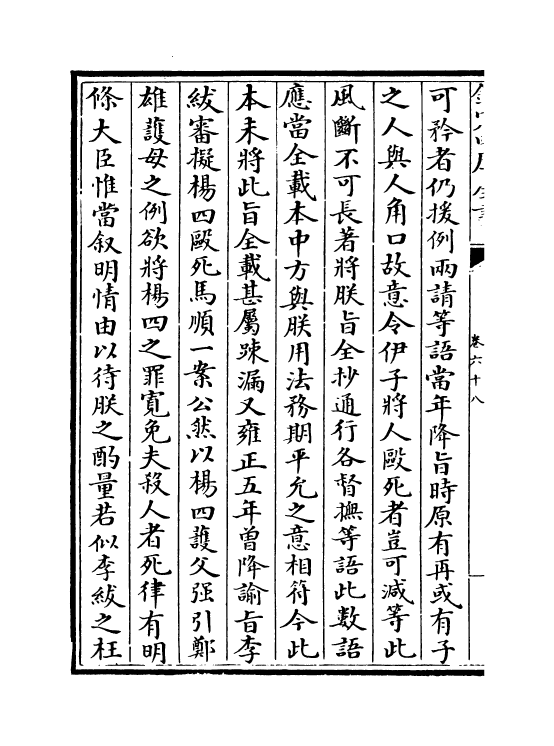 卷六十八
可矜者仍援例兩請等語當年降旨時原有再或有子
之人與人角口故意令伊子將人毆死者豈可減等此
風斷不可長著將朕旨全抄通行各督撫等語此數語
應當全載本中方與朕用法務期平允之意相符今此
本未將此旨全載甚屬踈漏又雍正五年曾降諭旨李
紱審擬楊四毆死馬順一案公然以楊四護父强引鄭
雄護母之例欲將楊四之罪寬免夫殺人者死律有明
條大臣惟當叙明情由以待朕之酌量若似李紱之枉